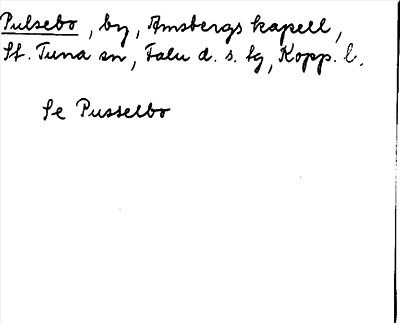 Pulsebo, by, Amsbergs kapell,
St. Tuna sn, Falu d. s. tg, Kopp. l.
Se Pusselbo